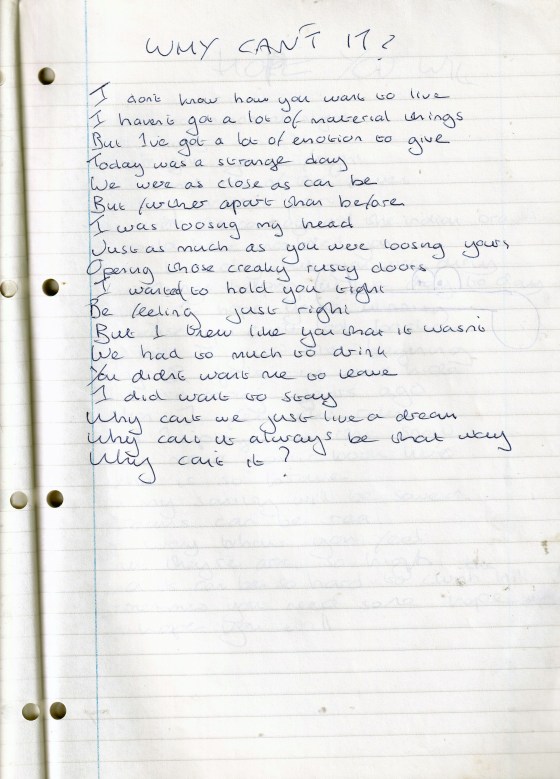 WHY CAN'T IT?
I don't know how you want to live
I haven't got a lot of material things
But I've got a lot of emotion to give
Today was a strange day
We were as close as can be
But further apart than before
I was loosing my head
Just as much as you were loosing yours
Opening those creaky rusty doors
I wanted to hold you tight
Be feeling just right
But I knew like you that it wasn't
We had to much to drink
You didn't want me to leave
I did want to stay
Why can't we just live a dream
Why can't it always be that way
Why can't it?